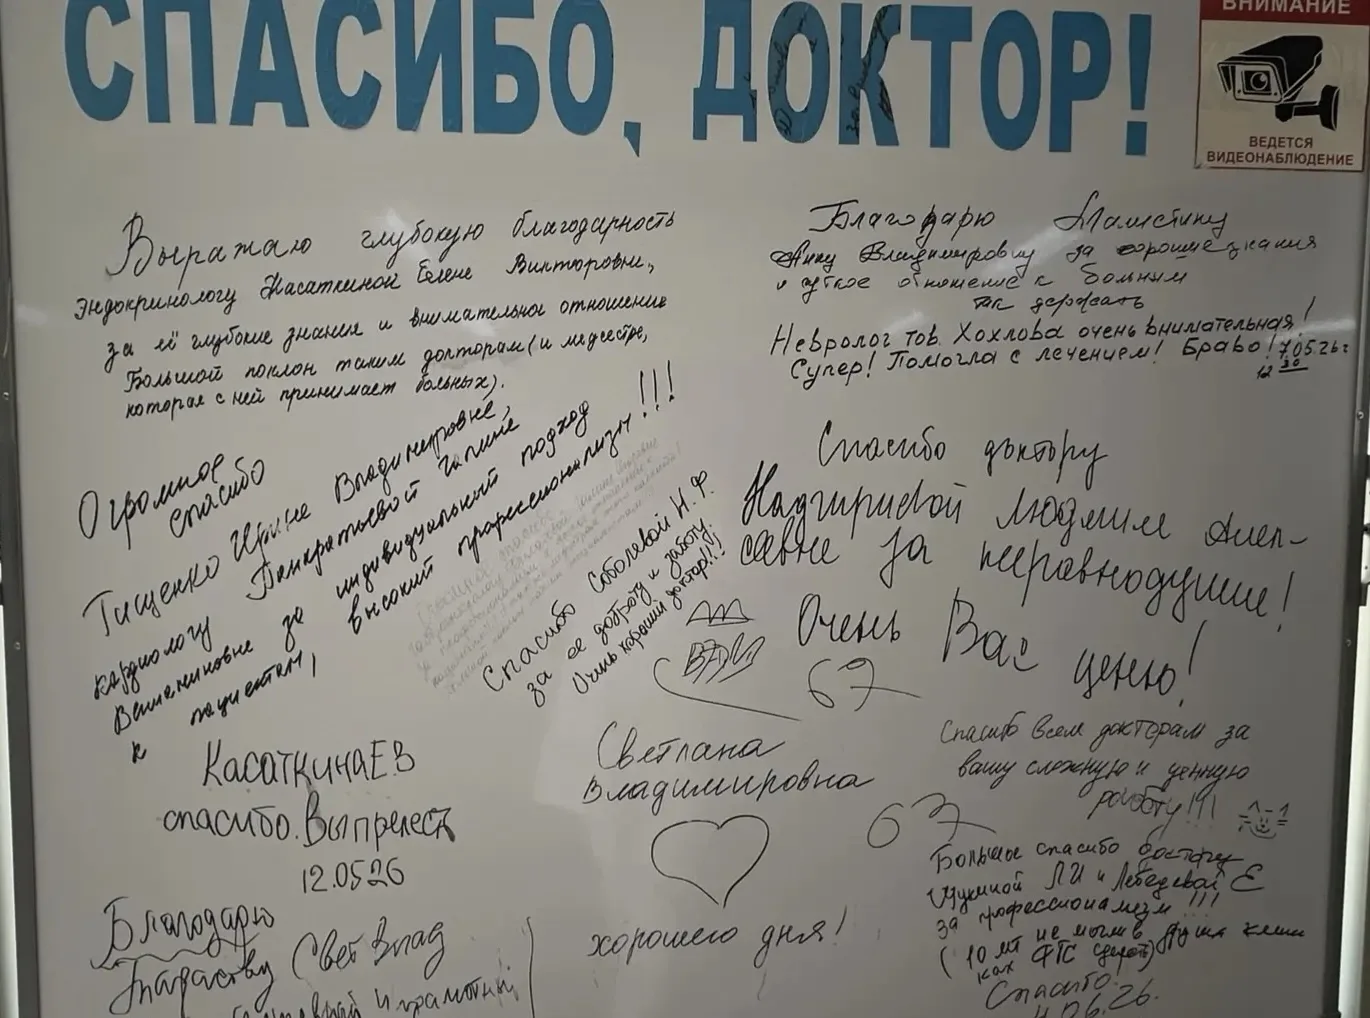 СПАСИБО, ДОКТОР!
ВНИМАНИЕ
ВЕДЕТСЯ
ВИДЕОНАБЛЮДЕНИЕ
Выражаю глубокую благодарность
эндокринологу Касаткиной Елене Викторовне,
за её глубокие знания и внимательное отношение
Большой поклон таким докторам (и медсестре,
которая с ней принимает больных).
Благодарю
Анну Владимировну за хорошие знания
и чуткое отношение к больным
так держать
Невролог тов. Хохлова очень внимательная!
Супер! Помогла с лечением! Браво! 7.05.26г
12 30
Огромное
спасибо
Тищенко Ирине Владимировне,
кардиологу Панкратьевой Галине
Вениаминовне за индивидуальный подход
к пациентам, высокий профессионализм!!!
Спасибо Соболевой Н.Ф.
за ее доброту и заботу.
Очень хороший доктор!!!
Спасибо доктору
Людмиле Алек-
сеевне за неравнодушие!
Очень Вас ценю!
67
Касаткина Е.В
спасибо. Вы прелесть
12.0526
Светлана
Владимировна
хорошего дня!
Спасибо всем докторам за
вашу сложную и ценную
работу!!!
67
Большое спасибо доктору
Щукиной ЛИ и Лебедевой Е
за профессионализм!!!
(10 лт не могли в других клини
ках ФГС сделать)
Спасибо.
Благодарю
Тарасову Свет Влад
и грамотный